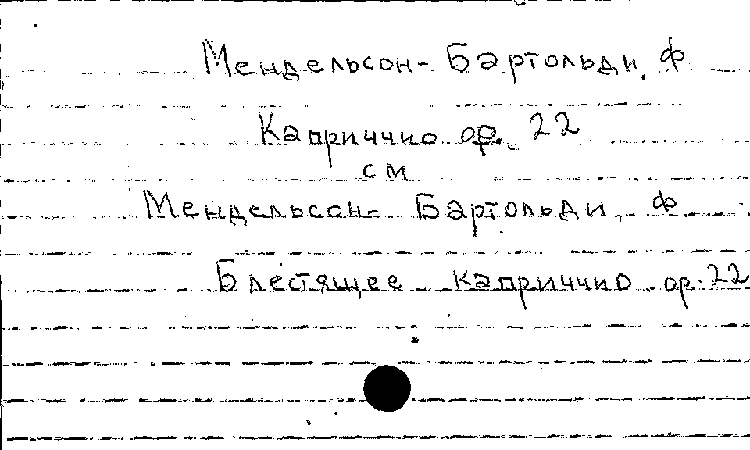 Мендельсон-Бартольди, Ф
Каприччио op. 22
см
Мендельсон-Бартольди, Ф
Блестящее каприччио op. 22